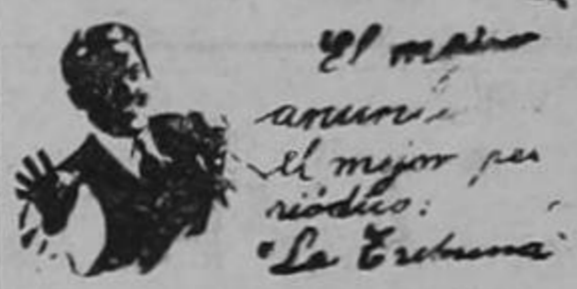 El
anunci
el mejor pe
riódico:
"La Tribuna"